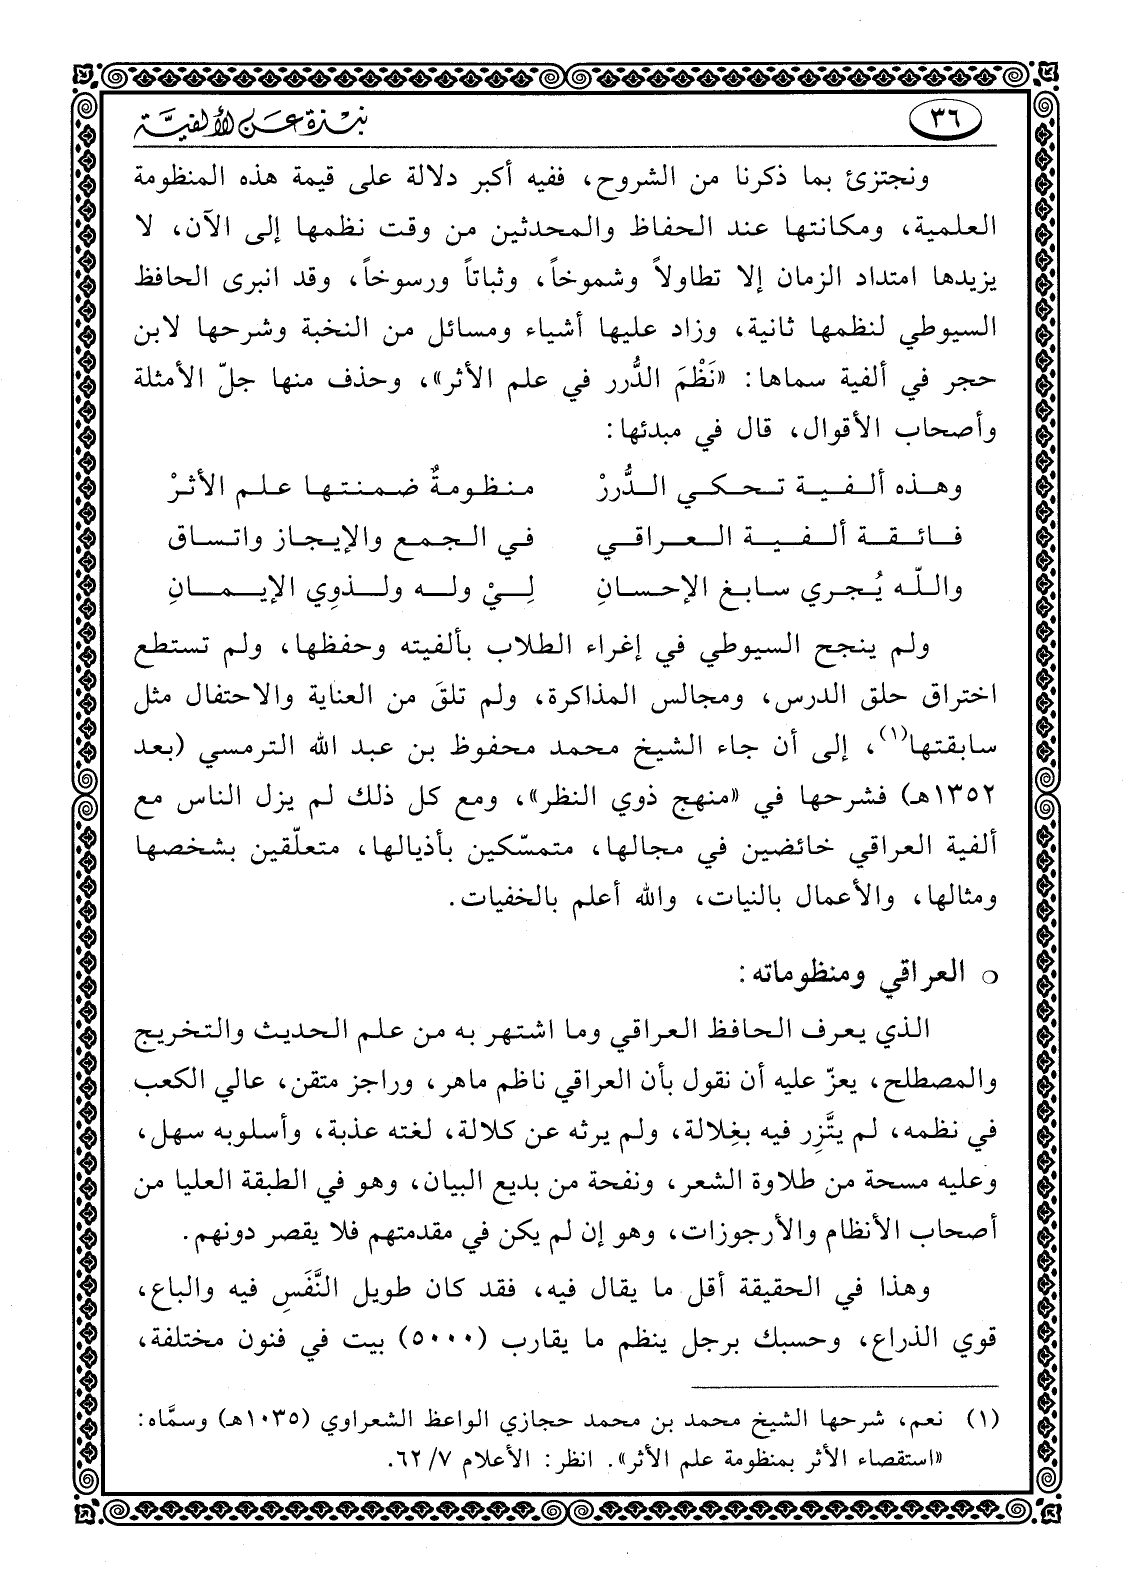 ٣٦
نبذة عن الألفية
ونجتزئ بما ذكرنا من الشروح، ففيه أكبر دلالة على قيمة هذه المنظومة
العلمية، ومكانتها عند الحفاظ والمحدثين من وقت نظمها إلى الآن، لا
يزيدها امتداد الزمان إلا تطاولاً وشموخاً، وثباتاً ورسوخاً، وقد انبرى الحافظ
السيوطي لنظمها ثانية، وزاد عليها أشياء ومسائل من النخبة وشرحها لابن
حجر في ألفية سماها: «نَظْمَ الدُّرر في علم الأثر»، وحذف منها جلّ الأمثلة
وأصحاب الأقوال، قال في مبدئها:
وهذه ألفية تحكي الدُّررْ منظومةٌ ضمنتها علم الأثرْ
فائقة ألفية العراقي في الجمع والإيجاز واتساق
واللّه يُجري سابغ الإحسانِ لِيْ وله ولذوِي الإيمانِ
ولم ينجح السيوطي في إغراء الطلاب بألفيته وحفظها، ولم تستطع
اختراق حلق الدرس، ومجالس المذاكرة، ولم تلقَ من العناية والاحتفال مثل
سابقتها(١)، إلى أن جاء الشيخ محمد محفوظ بن عبد الله الترمسي (بعد
١٣٥٢هـ) فشرحها في «منهج ذوي النظر»، ومع كل ذلك لم يزل الناس مع
ألفية العراقي خائضين في مجالها، متمسّكين بأذيالها، متعلّقين بشخصها
ومثالها، والأعمال بالنيات، والله أعلم بالخفيات.
○ العراقي ومنظوماته:
الذي يعرف الحافظ العراقي وما اشتهر به من علم الحديث والتخريج
والمصطلح، يعزّ عليه أن نقول بأن العراقي ناظم ماهر، وراجز متقن، عالي الكعب
في نظمه، لم يتَّزِر فيه بغِلالة، ولم يرثه عن كلالة، لغته عذبة، وأسلوبه سهل،
وعليه مسحة من طلاوة الشعر، ونفحة من بديع البيان، وهو في الطبقة العليا من
أصحاب الأنظام والأرجوزات، وهو إن لم يكن في مقدمتهم فلا يقصر دونهم.
وهذا في الحقيقة أقل ما يقال فيه، فقد كان طويل النَّفَسِ فيه والباع،
قوي الذراع، وحسبك برجل ينظم ما يقارب (٥٠٠٠) بيت في فنون مختلفة،
(١) نعم، شرحها الشيخ محمد بن محمد حجازي الواعظ الشعراوي (١٠٣٥هـ) وسمَّاه:
«استقصاء الأثر بمنظومة علم الأثر». انظر: الأعلام ٧/ ٦٢.